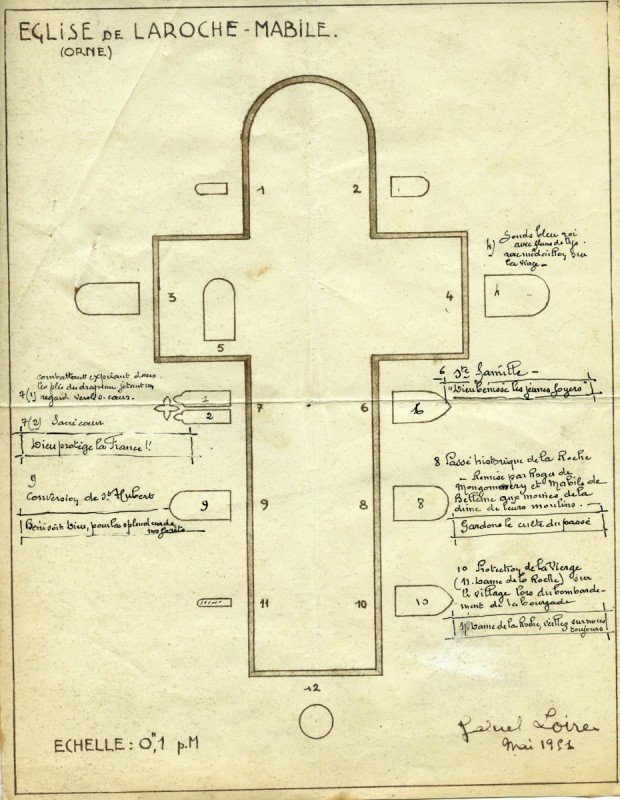 EGLISE DE LAROCHE-MABILE.
(ORNE)
1
2
3
4
5
4) Fonds bleu roi
avec fleurs de lys.
avec médaillon sur
la vierge -
4
combattant expirant dans
les plis du drapeau jetant un
7(1) regard vers le S. cœur.
1
2
7
7(2) Sacré cœur
Dieu protège la France !!
6 Ste famille -
"Dieu bénisse les jeunes foyers"
6
6
9
Conversion de St Hubert
Béni soit Dieu, pour la splendeur de
nos forêts
9
9
8 Passé historique de la Roche
- Remise par Roger de
Mongommery et Mabile de
Bellême aux moines de la
dîme de leurs moulins. -
Gardons le culte du passé
8
8
10 Protection de la Vierge
(N. Dame de la Roche) sur
le village lors du bombarde-
ment de la bourgade
N. Dame de la Roche, veillez sur nous
toujours
10
10
11
12
ECHELLE : 0m,1 p.M
Gabriel Loire
Mai 1951